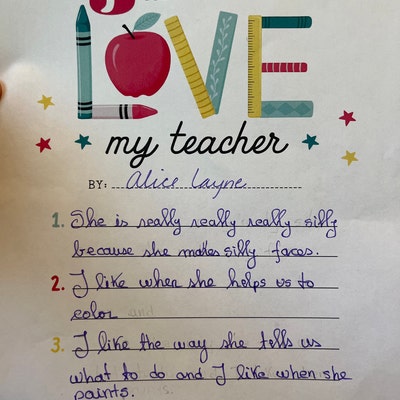 LOVE
my teacher
BY: Alice Layne
1. She is really really really silly
because she makes silly faces.
2. I like when she helps us to
color and
3. I like the way she tells us
what to do and I like when she
paints.